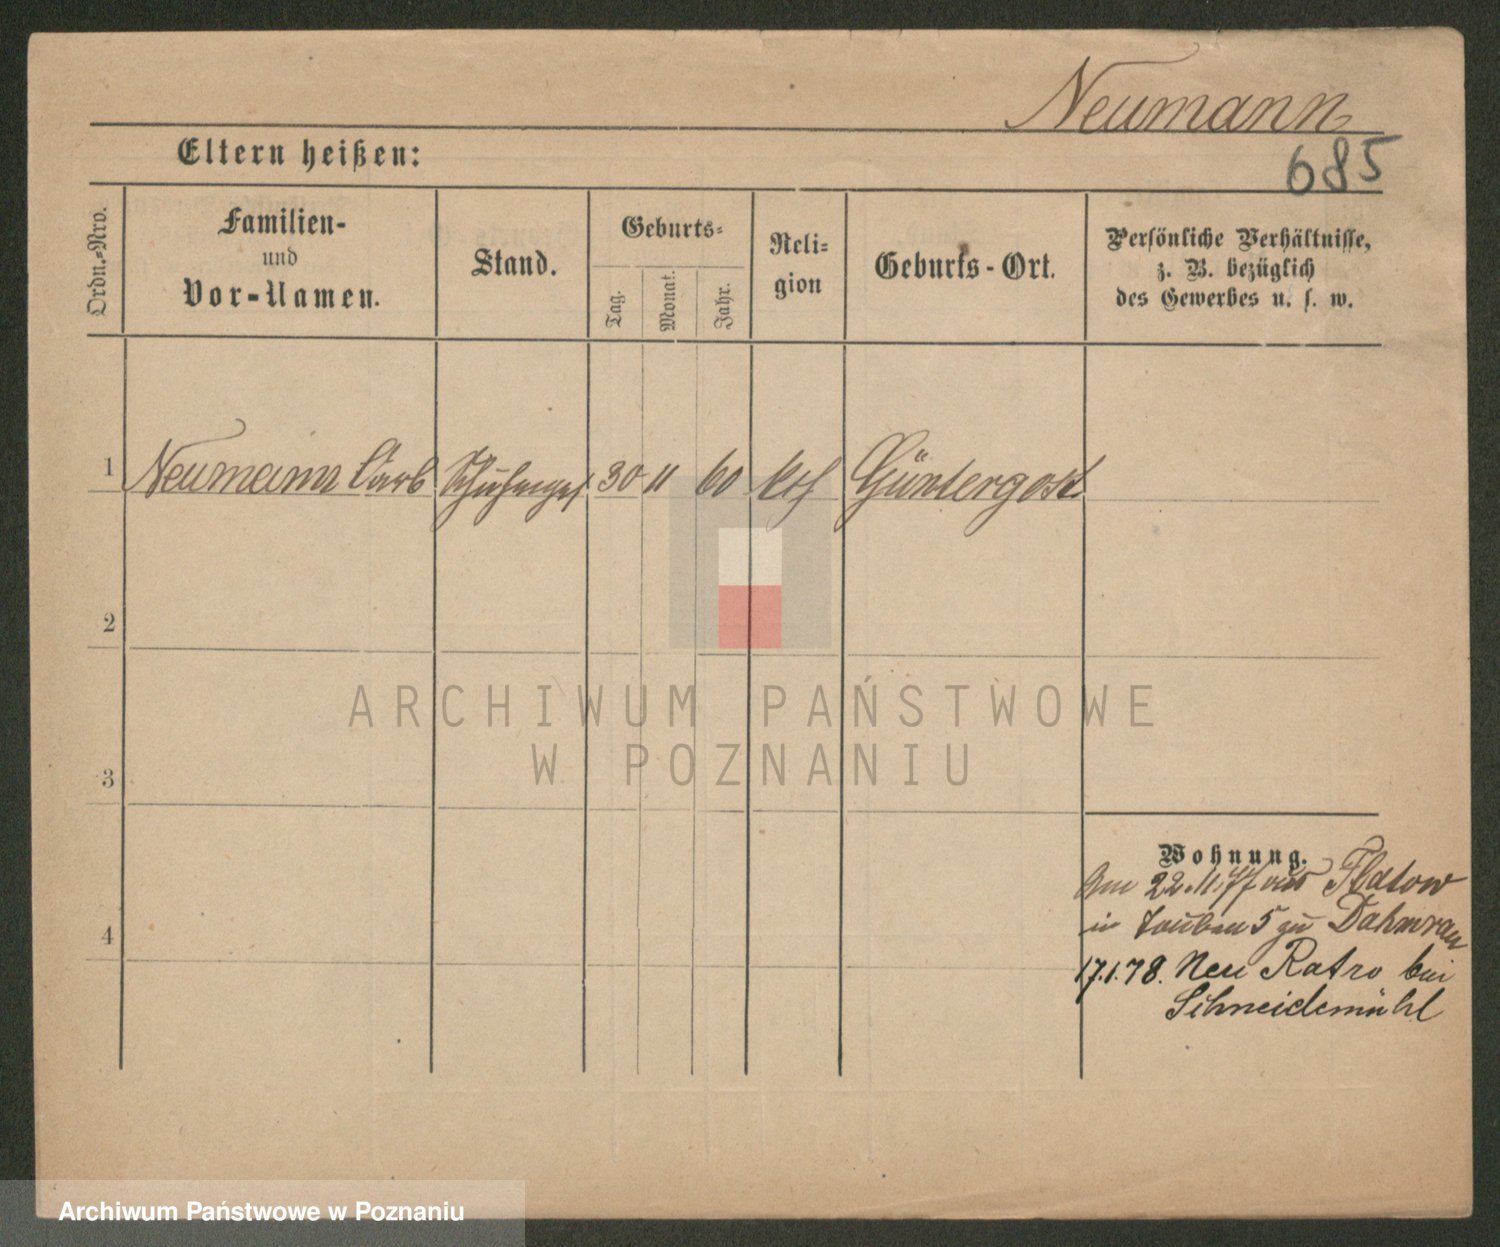 Neumann
685
Eltern heißen:
Ordn.-Nro.
Familien-
und
Vor-Namen.
Stand.
Geburts-
Tag.
Monat.
Jahr.
Reli-
gion
Geburts-Ort.
Persönliche Verhältnisse,
z. B. bezüglich
des Gewerbes u. s. w.
1 Neumann Carl 30 11 60 kth Güntergost
2
3
4
ARCHIWUM PAŃSTWOWE
W POZNANIU
Wohnung.
Am 22.11.77 aus Flatow
in 5 zu
17.1.78. Neu Ratro bei
Schneidemühl
Archiwum Państwowe w Poznaniu